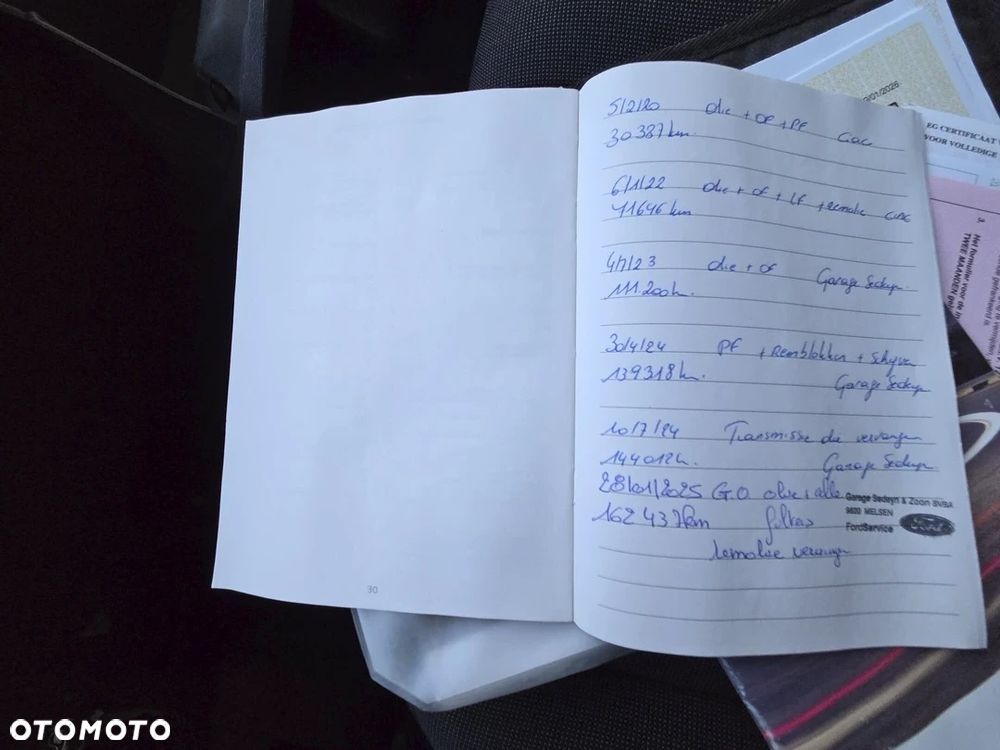 5/2/20 olie + OF + PF CAC
30387km.
6/1/22 olie + OF + LF + remolie CAC
71646 km
4/7/23 olie + OF Garage Sedeyn.
111.200k.
30/4/24 PF + Remblokken + schijven
139318k. Garage Sedeyn
10/7/24 Transmissie olie vervangen
144012k. Garage Sedeyn
28/01/2025 G.O olie + alle
162 437km filters
remolie vervangen
Garage Sedeyn & Zoon BVBA
9820 MELSEN
FordService Ford
30
/01/2026
EG CERTIFICAAT V
VOOR VOLLEDIGE
3. Het formulier voor de in
TWEE MAANDEN gel
OTOMOTO